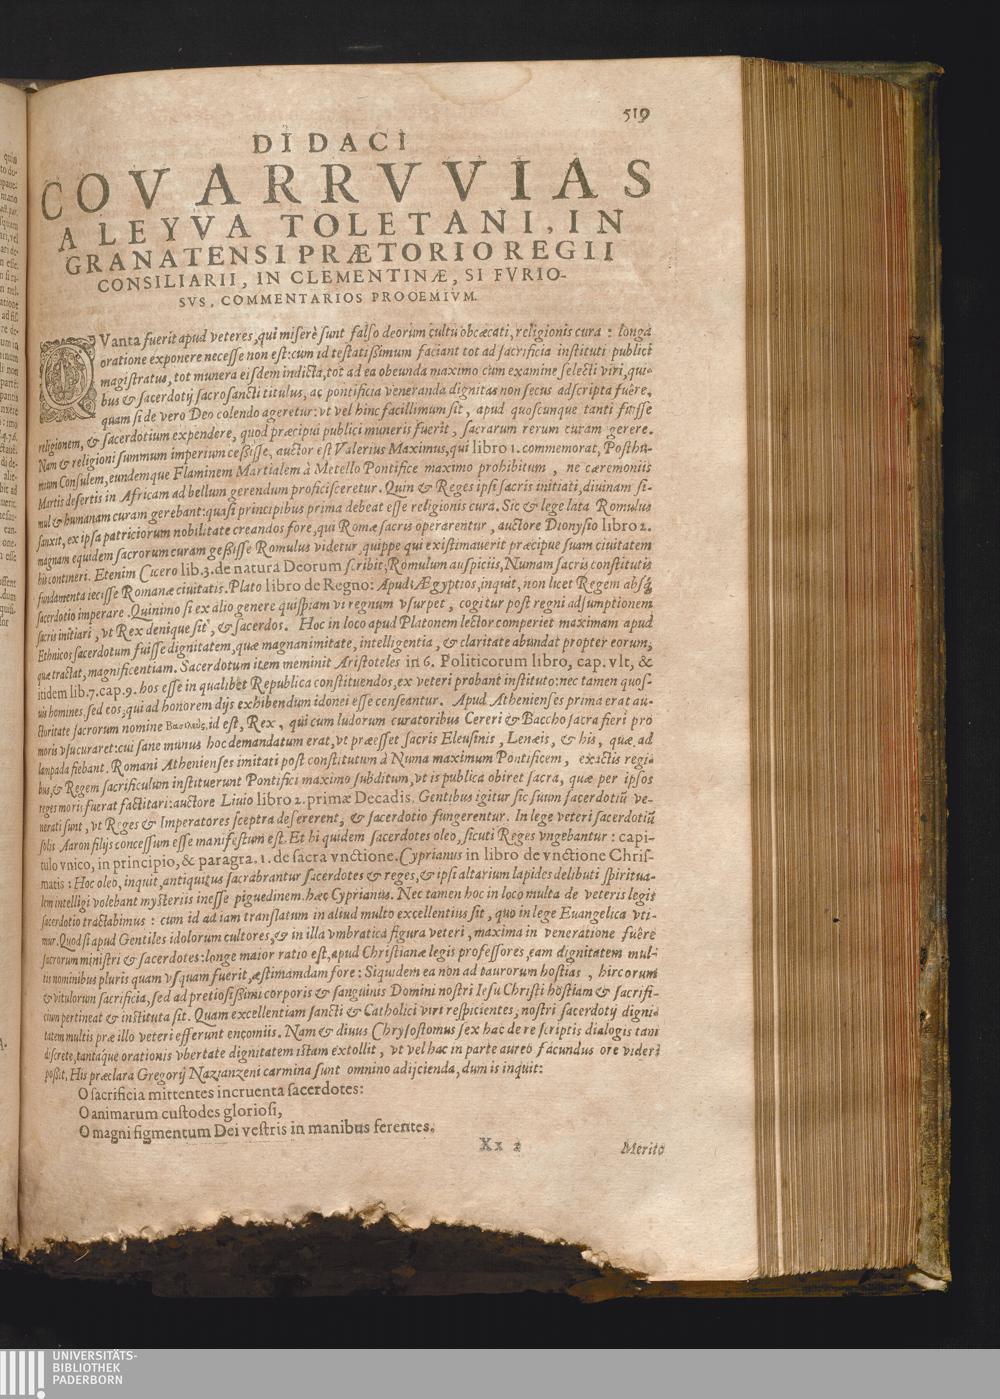 519
DIDACI
COVARRVVIAS
A LEYVA TOLETANI, IN
GRANATENSI PRÆTORIO REGII
CONSILIARII, IN CLEMENTINÆ, SI FVRIO-
SVS, COMMENTARIOS PROOEMIVM.
QVanta fuerit apud veteres, qui miserè sunt falso deorum cultu obcæcati, religionis cura : longa
oratione exponere necesse non est: cum id testatißimum faciant tot ad sacrificia instituti publici
magistratus, tot munera eisdem indicta, tot ad ea obeunda maximo cum examine selecti viri, qui-
bus & sacerdotij sacrosancti titulus, ac pontificia veneranda dignitas non secus adscripta fuêre,
quam si de vero Deo colendo ageretur: vt vel hinc facillimum sit, apud quoscunque tanti fuisse
religionem, & sacerdotium expendere, quod præcipui publici muneris fuerit, sacrarum rerum curam gerere.
Nam & religioni summum imperium ceßisse, auctor est Valerius Maximus, qui libro 1. commemorat, Posthu-
mium Consulem, eundemque Flaminem Martialem à Metello Pontifice maximo prohibitum, ne cæremoniis
Martis desertis in Africam ad bellum gerendum proficisceretur. Quin & Reges ipsi sacris initiati, diuinam si-
mul & humanam curam gerebant: quasi principibus prima debeat esse religionis cura. Sic & lege lata Romulus
sanxit, ex ipsa patriciorum nobilitate creandos fore, qui Romæ sacris operarentur, auctore Dionysio libro 2.
magnam equidem sacrorum curam geßisse Romulus videtur, quippe qui existimauerit præcipue suam ciuitatem
his contineri. Etenim Cicero lib. 3. de natura Deorum scribit, Romulum auspiciis, Numam sacris constitutis
fundamenta iecisse Romanæ ciuitatis. Plato libro de Regno: Apud Ægyptios, inquit, non licet Regem absq;
sacerdotio imperare. Quinimo si ex alio genere quispiam vi regnum vsurpet, cogitur post regni adsumptionem
sacris initiari, vt Rex denique sit, & sacerdos. Hoc in loco apud Platonem lector comperiet maximam apud
Ethnicos sacerdotum fuisse dignitatem, quæ magnanimitate, intelligentia, & claritate abundat propter eorum,
quæ tractat, magnificentiam. Sacerdotum item meminit Aristoteles in 6. Politicorum libro, cap. vlt, &
itidem lib. 7. cap. 9. hos esse in qualibet Republica constituendos, ex veteri probant instituto: nec tamen quos-
uis homines, sed eos, qui ad honorem dijs exhibendum idonei esse censeantur. Apud Athenienses prima erat au-
ctoritate sacrorum nomine Βασιλεὺς, id est, Rex, qui cum ludorum curatoribus Cereri & Baccho sacra fieri pro
moris vsu curaret: cui sane munus hoc demandatum erat, vt præesset sacris Eleusinis, Lenæis, & his, quæ ad
lampada fiebant. Romani Athenienses imitati post constitutum à Numa maximum Pontificem, exactis regi-
bus, & Regem sacrificulum instituerunt Pontifici maximo subditum, vt is publica obiret sacra, quæ per ipsos
reges moris fuerat factitari: auctore Liuio libro 2. primæ Decadis. Gentibus igitur sic suum sacerdotiũ ve-
nerati sunt, vt Reges & Imperatores sceptra desererent, & sacerdotio fungerentur. In lege veteri sacerdotiũ
solis Aaron filijs concessum esse manifestum est. Et hi quidem sacerdotes oleo, sicuti Reges vngebantur : capi-
tulo vnico, in principio, & paragra. 1. de sacra vnctione. Cyprianus in libro de vnctione Chris-
matis : Hoc oleo, inquit, antiquitus sacrabantur sacerdotes & reges, & ipsi altarium lapides delibuti spiritua-
lem intelligi volebant mysteriis inesse piguedinem. hæc Cyprianus. Nec tamen hoc in loco multa de veteris legis
sacerdotio tractabimus : cum id ad iam translatum in aliud multo excellentius sit, quo in lege Euangelica vti-
mur. Quod si apud Gentiles idolorum cultores, & in illa vmbratica figura veteri, maxima in veneratione fuêre
sacrorum ministri & sacerdotes: longe maior ratio est, apud Christianæ legis professores, eam dignitatem mul-
tis nominibus pluris quam vsquam fuerit, æstimamdam fore : Siquidem ea non ad taurorum hostias, hircorum
& vitulorum sacrificia, sed ad pretiosißimi corporis & sanguinis Domini nostri Iesu Christi hostiam & sacrifi-
cium pertineat & instituta sit. Quam excellentiam sancti & Catholici viri respicientes, nostri sacerdotij digni-
tatem multis præ illo veteri efferunt encomiis. Nam & diuus Chrysostomus sex hac de re scriptis dialogis tam
discrete, tantaque orationis vbertate dignitatem istam extollit, vt vel hac in parte aureo facundus ore videri
poßit. His præclara Gregorij Nazianzeni carmina sunt omnino adijcienda, dum is inquit:
O sacrificia mittentes incruenta sacerdotes:
O animarum custodes gloriosi,
O magni figmentum Dei vestris in manibus ferentes.
Xx 2
Merito
UNIVERSITÄTS-
BIBLIOTHEK
PADERBORN